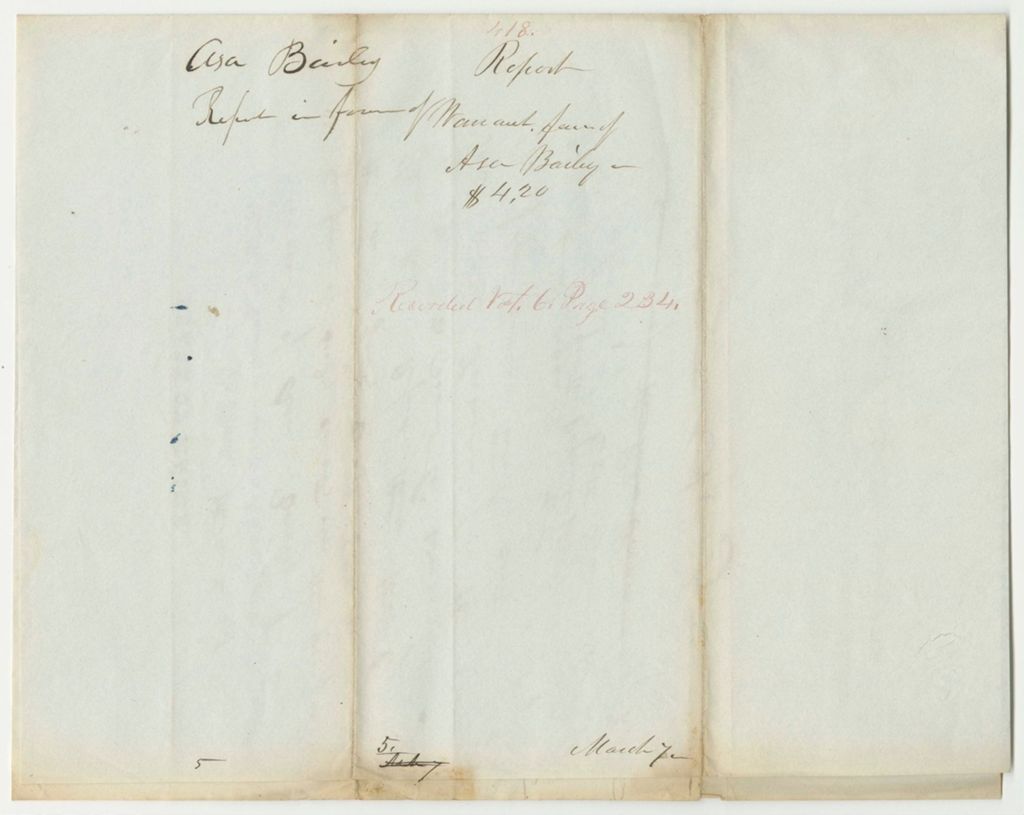 418.
Asa Bailey
Report in favor of
Report
Warrant. fav. of
Asa Bailey –
$4,20
Recorded Vol. 6. Page 234.
5
5.
March 7 –